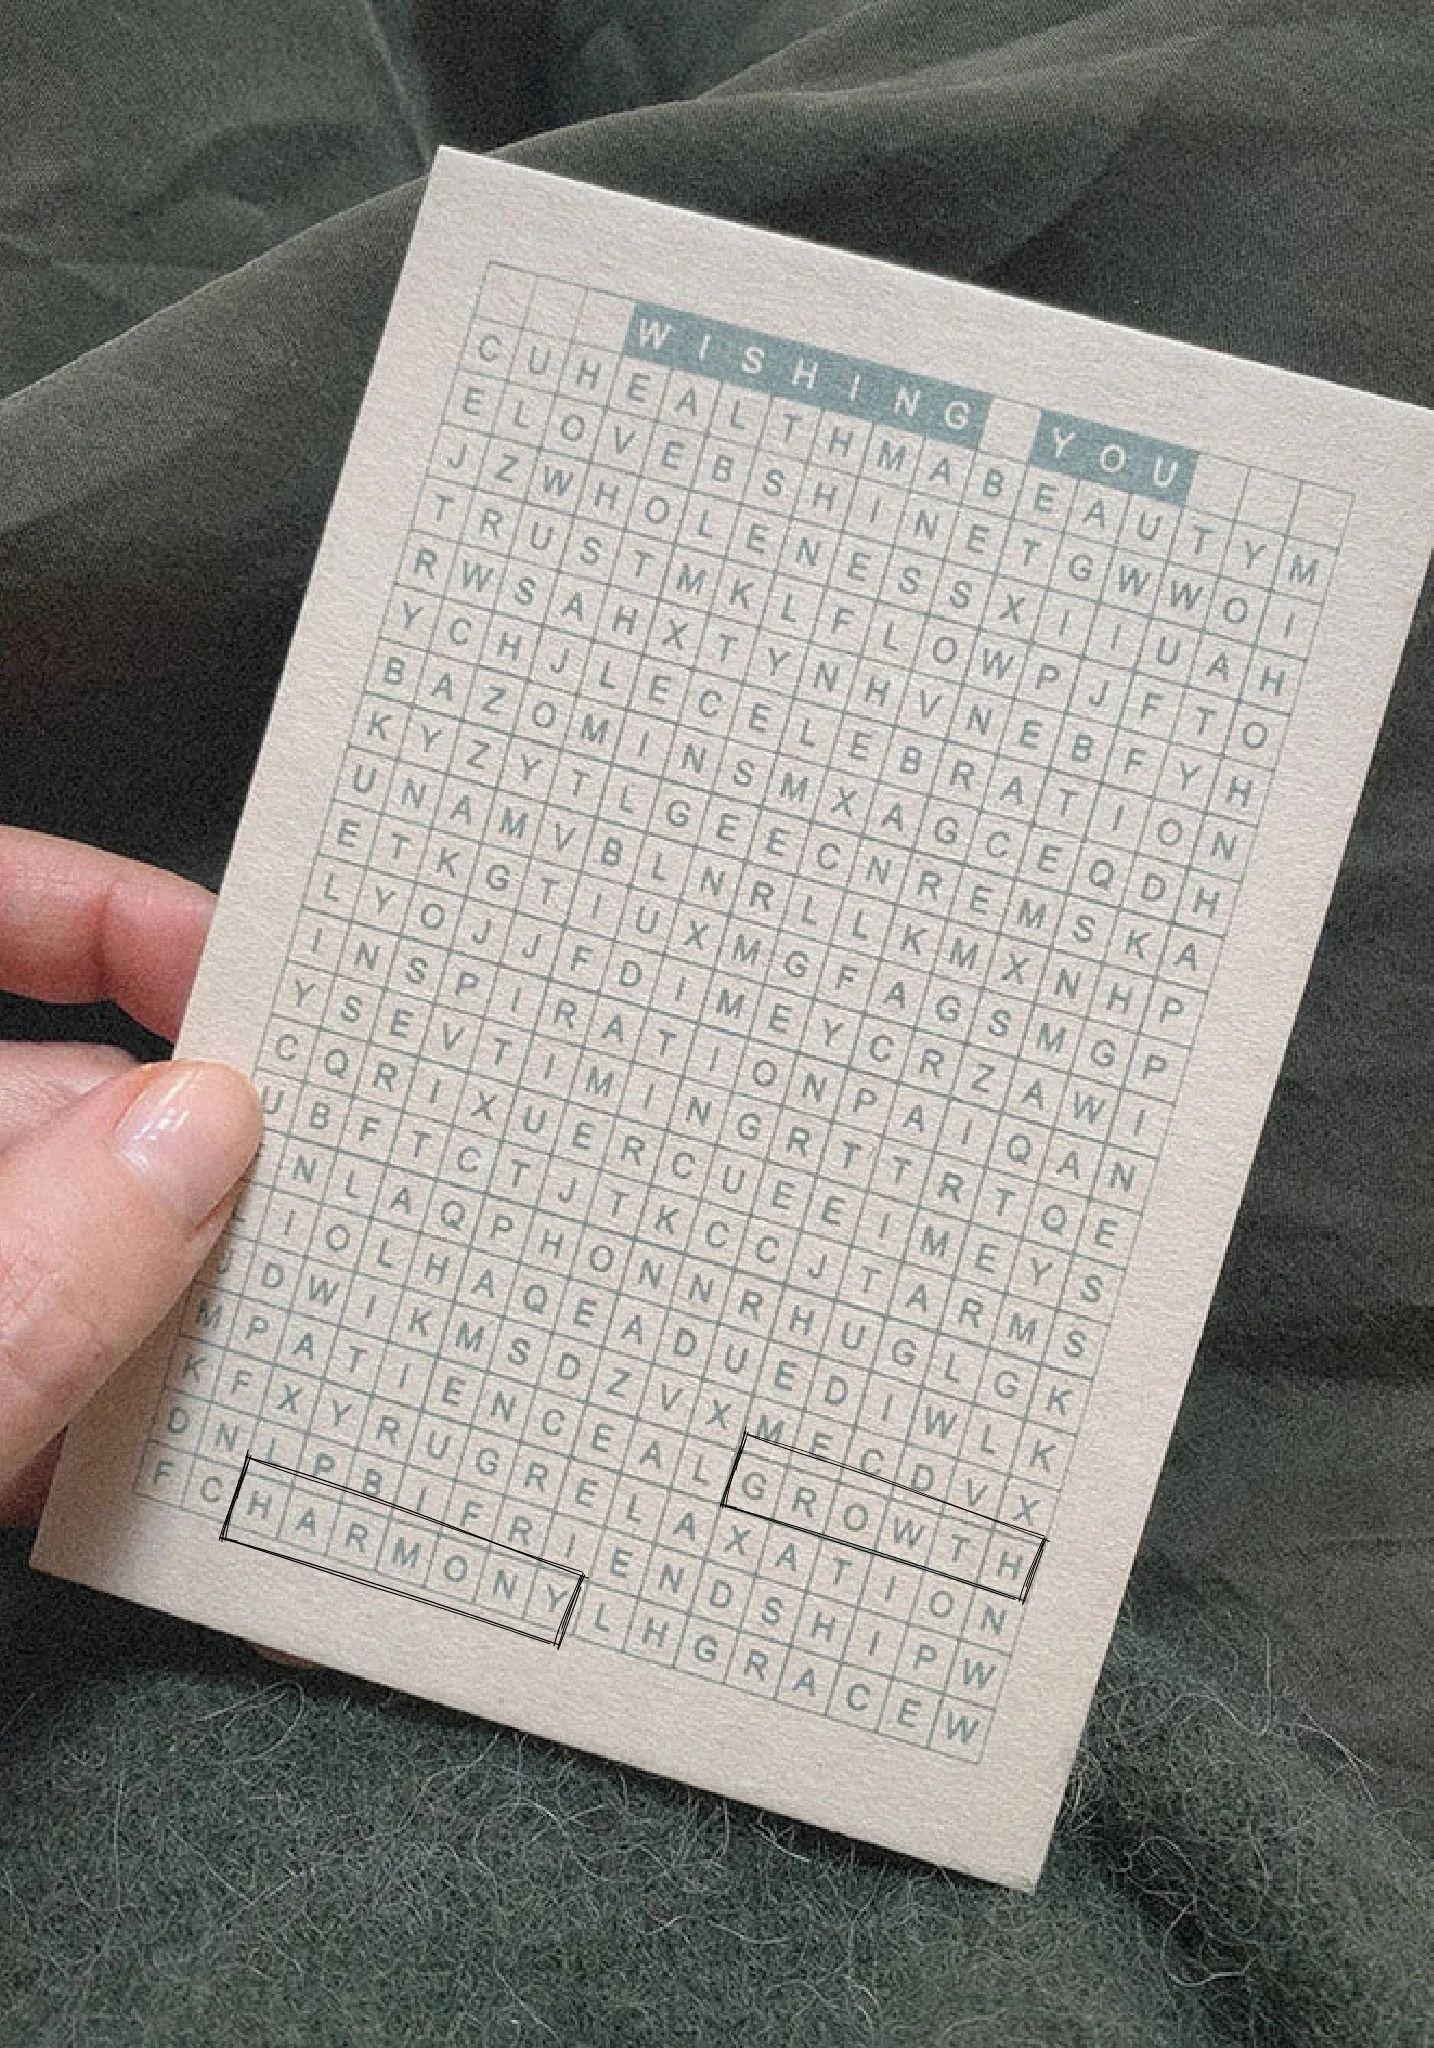 WISHING YOU
C U H E A L T H M A B E A U T Y M
E L O V E B S H I N E T G W W O I
J Z W H O L E N E S S X I I U A H
T R U S T M K L F L O W P J F T O
R W S A H X T Y N H V N E B F Y H
Y C H J L E C E L E B R A T I O N
B A Z O M I N S M X A G C E Q D H
K Y Z Y T L G E E C N R E M S K A
U N A M V B L N R L L K M X N H P
E T K G T I U X M G F A G S M G P
L Y O J J F D I M E Y C R Z A W I
I N S P I R A T I O N P A I Q A N
Y S E V T I M I N G R T T R T Q E
C Q R I X U E R C U E E I M E Y S
U B F T C T J T K C C J T A R M S
N L A Q P H O N N R H U G L G K
I O L H A Q E A D U E D I W L K
D W I K M S D Z V X M E C D V X
M P A T I E N C E A L G R O W T H
K F X Y R U G R E L A X A T I O N
D N L P B I F R I E N D S H I P W
F C H A R M O N Y L H G R A C E W